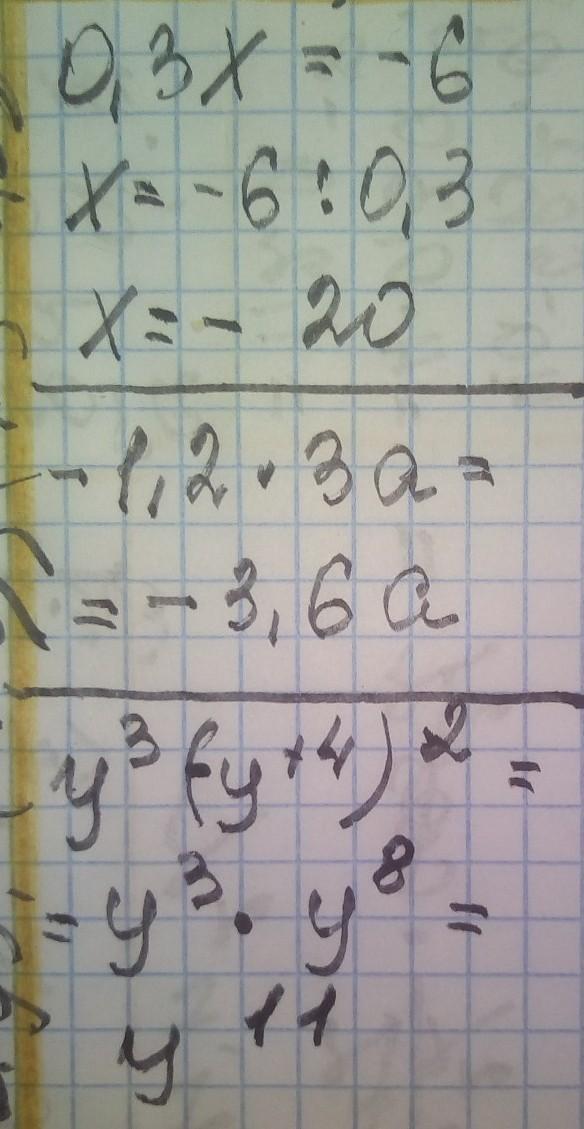 0,3x = -6
x = -6 : 0,3
x = - 20
-1,2 · 3a =
= -3,6a
y³(-y⁺⁴)² =
= y³ · y⁸ =
y¹¹